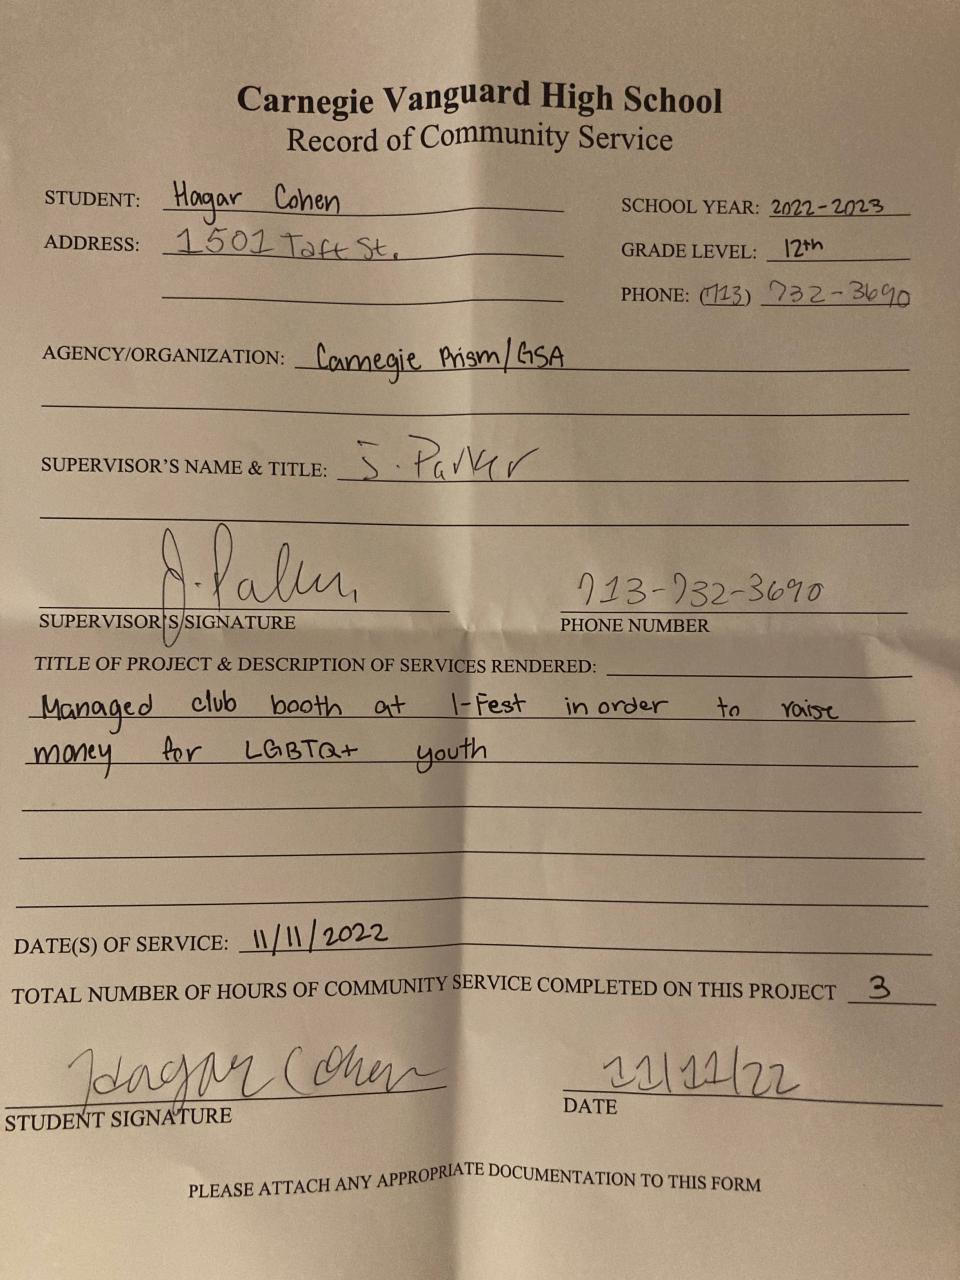 Carnegie Vanguard High School
Record of Community Service
STUDENT: Hagar Cohen SCHOOL YEAR: 2022-2023
ADDRESS: 1501 Taft St. GRADE LEVEL: 12th
PHONE: (713) 732-3690
AGENCY/ORGANIZATION: Carnegie Prism/GSA
SUPERVISOR'S NAME & TITLE: J. Parker
J. Parker 713-732-3690
SUPERVISOR'S SIGNATURE PHONE NUMBER
TITLE OF PROJECT & DESCRIPTION OF SERVICES RENDERED:
Managed club booth at I-Fest in order to raise
money for LGBTQ+ youth
DATE(S) OF SERVICE: 11/11/2022
TOTAL NUMBER OF HOURS OF COMMUNITY SERVICE COMPLETED ON THIS PROJECT 3
Hagar Cohen 11/11/22
STUDENT SIGNATURE DATE
PLEASE ATTACH ANY APPROPRIATE DOCUMENTATION TO THIS FORM